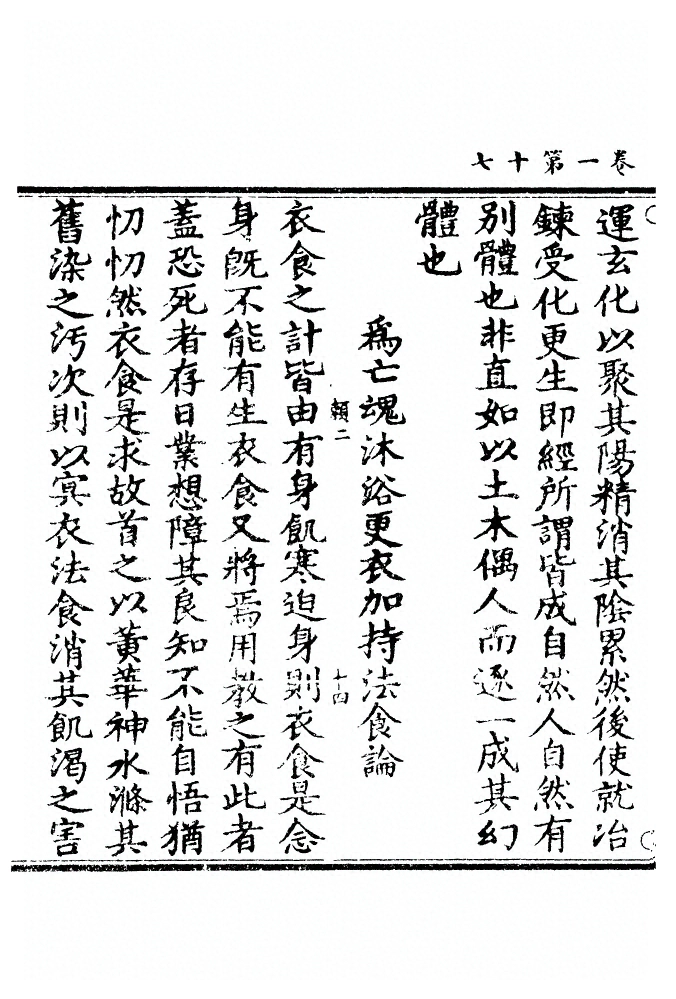 卷一第十七
運玄化以聚其陽精消其陰累然後使就冶
鍊受化更生即經所謂皆成自然人自然有
別體也非直如以土木偶人而逐一成其幻
體也
爲亡魂沐浴更衣加持法食論
頼二
十四
衣食之計皆由有身飢寒迫身則衣食是念
身既不能有生衣食又將焉用教之有此者
蓋恐死者存日業想障其良知不能自悟猶
忉忉然衣食是求故首之以黃華神水滌其
舊染之汚次則以冥衣法食消其飢渴之害